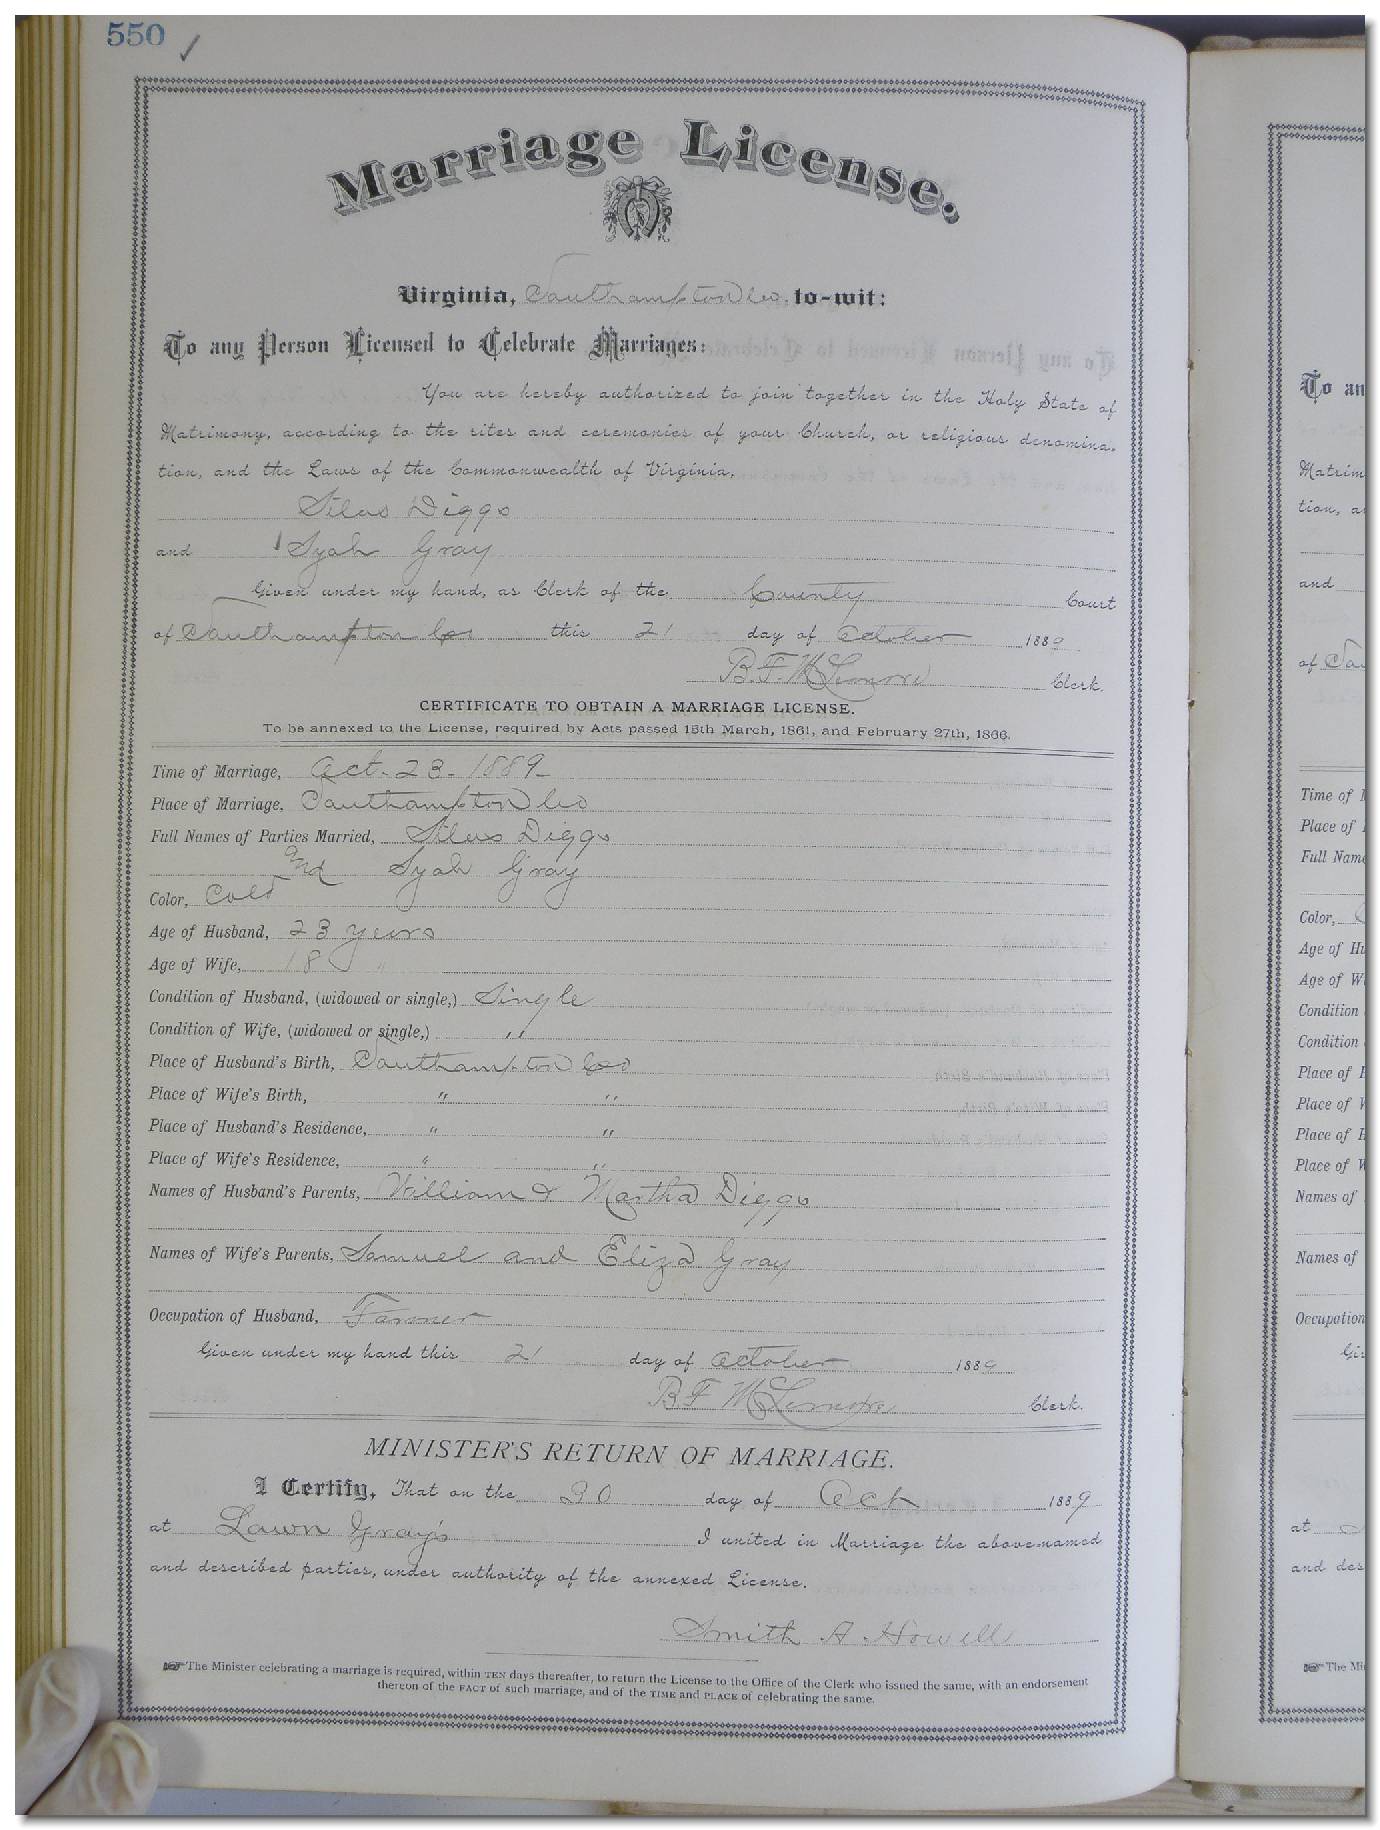 550 ✓
Marriage License.
Virginia, Southampton Co. to-wit:
To any Person Licensed to Celebrate Marriages:
You are hereby authorized to join together in the Holy State of
Matrimony, according to the rites and ceremonies of your Church, or religious denomina-
tion, and the Laws of the Commonwealth of Virginia.
Silas Diggs
and Syah Gray
Given under my hand, as Clerk of the County Court
of Southampton Co. this 21 day of October 1889
B. F. McLemore Clerk.
CERTIFICATE TO OBTAIN A MARRIAGE LICENSE.
To be annexed to the License, required by Acts passed 15th March, 1861, and February 27th, 1866.
Time of Marriage, Oct. 23 - 1889 -
Place of Marriage, Southampton Co
Full Names of Parties Married, Silas Diggs
and Syah Gray
Color, Cold
Age of Husband, 23 years
Age of Wife, 18 "
Condition of Husband, (widowed or single,) Single
Condition of Wife, (widowed or single,) "
Place of Husband's Birth, Southampton Co
Place of Wife's Birth, " "
Place of Husband's Residence, " "
Place of Wife's Residence, " "
Names of Husband's Parents, William & Martha Diggs
Names of Wife's Parents, Samuel and Eliza Gray
Occupation of Husband, Farmer
Given under my hand this 21 day of October 1889
B F McLemore Clerk.
MINISTER'S RETURN OF MARRIAGE.
I Certify, That on the 30 day of Oct 1889
at Lawn Gray's I united in Marriage the above-named
and described parties, under authority of the annexed License.
Smith A Howell
☞ The Minister celebrating a marriage is required, within TEN days thereafter, to return the License to the Office of the Clerk who issued the same, with an endorsement
thereon of the FACT of such marriage, and of the TIME and PLACE of celebrating the same.
To an
Matrim
tion, a
and
of Sou
Time of
Place of
Full Name
Color,
Age of Hu
Age of W
Condition
Condition
Place of H
Place of W
Place of H
Place of W
Names of
Names of
Occupation
Gi
at
and des
☞ The Mi